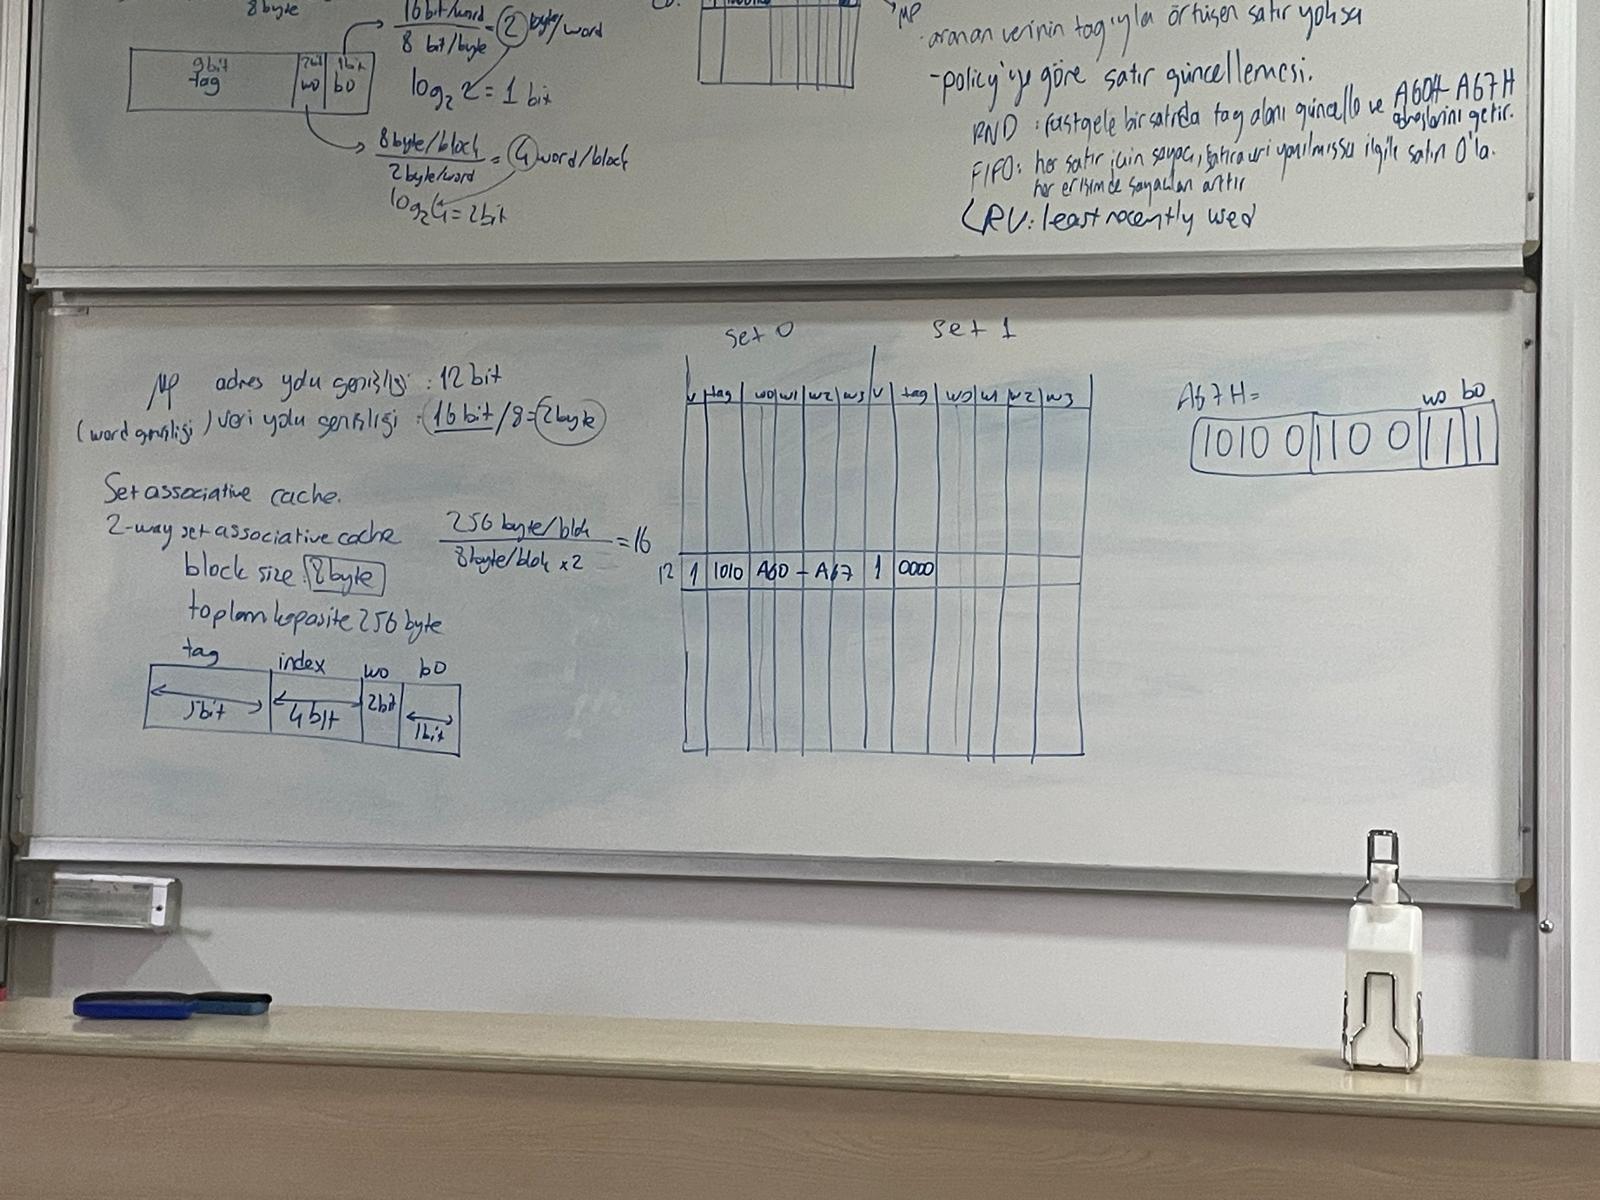 8byte
16bit/word
8 bit/byte
= 2 byte/word
log₂ 2 = 1 bit
9bit
tag
2bit
wo
1bit
bo
8byte/block
2byte/word
= 4 word/block
log₂4 = 2bit
MP
aranan verinin tag'ıyla örtüşen satır yoksa
-policy'ye göre satır güncellemesi.
RND : rastgele bir satırda tag alanı güncelle ve A60H-A67H
adreslerini getir.
FIFO: her satır için sayaç, satıra veri yazılmışsa ilgili satırı 0'la.
her erişimde sayaçları arttır
LRU: least recently used
MP adres yolu genişliği : 12 bit
(word genişliği) veri yolu genişliği : 16 bit/8 = 2byte
Set associative cache.
2-way set associative cache
block size: 8byte
toplam kapasite 256 byte
256 byte/blok
8byte/blok x2
= 16
tag index wo bo
5bit 4bit 2bit 1bit
set 0 set 1
v tag w0 w1 w2 w3 v tag w0 w1 w2 w3
12 1 1010 A60 - A67 1 0000
A67H =
wo bo
10100 1100 11 1